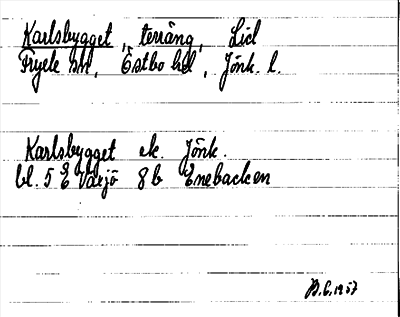 Karlsbygget, terräng, Lid
Fryele sn, Östbo hd, Jönk. l.
Karlsbygget ek. Jönk.
bl. 5 E Växjö 8 b Enebacken
1957